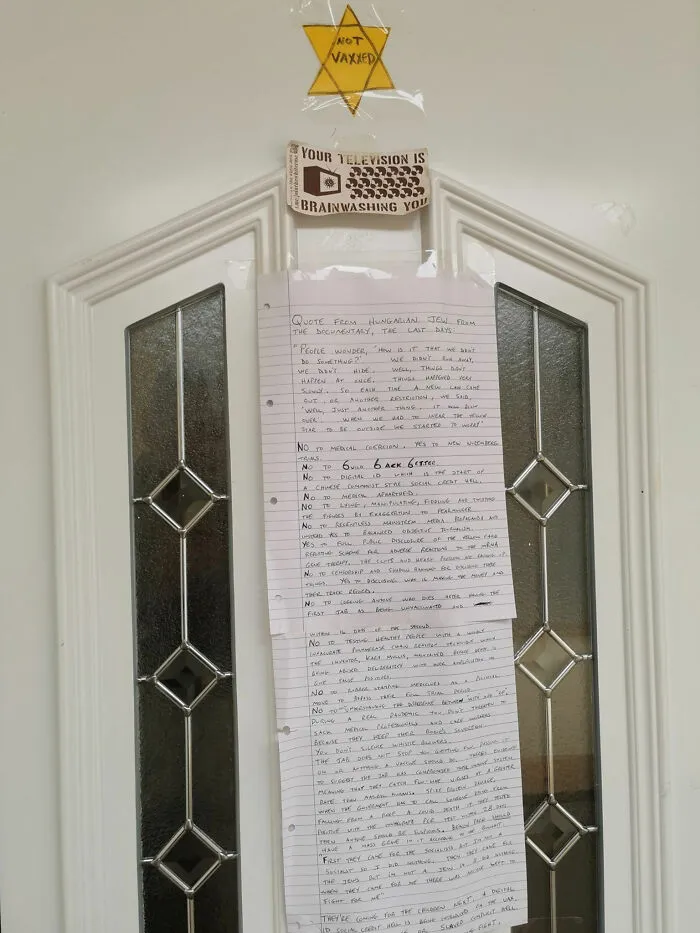 NOT
VAXXED
YOUR TELEVISION IS
BRAINWASHING YOU
QUOTE FROM HUNGARIAN JEW FROM
THE DOCUMENTARY, THE LAST DAYS:
"PEOPLE WONDER, 'HOW IS IT THAT WE DIDN'T
DO SOMETHING?' WE DIDN'T RUN AWAY,
WE DIDN'T HIDE. WELL, THINGS DIDN'T
HAPPEN AT ONCE. THINGS HAPPENED VERY
SLOWLY. SO EACH TIME A NEW LAW CAME
OUT, OR ANOTHER RESTRICTION, WE SAID,
'WELL, JUST ANOTHER THING. IT WILL BLOW
OVER'. WHEN WE HAD TO WEAR THE YELLOW
STAR TO BE OUTSIDE WE STARTED TO WORRY"
NO TO MEDICAL COERCION. YES TO NEW NUREMBERG
TRIALS.
NO TO 6UILD 6ACK 6ETTER
NO TO DIGITAL ID WHICH IS THE START OF
A CHINESE COMMUNIST STYLE SOCIAL CREDIT HELL.
NO TO MEDICAL APARTHEID.
NO TO LYING, MANIPULATING, FIDDLING AND TWISTING
THE FIGURES BY EXAGGERATION TO FEARMONGER
NO TO RELENTLESS MAINSTREAM MEDIA PROPAGANDA AND
INSTEAD YES TO BALANCED OBJECTIVE JOURNALISM.
YES TO FULL PUBLIC DISCLOSURE OF THE YELLOW CARD
REPORTING SCHEME FOR ADVERSE REACTIONS TO THE MRNA
GENE THERAPY. THE CLOTS AND HEART
NO TO CENSORSHIP AND SHADOW BANNING FOR DISCUSSING THESE
THINGS. YES TO DISCLOSING WHO IS MAKING THE MONEY AND
THEIR TRACK RECORDS.
NO TO ANYONE WHO DIES AFTER HAVING THE
FIRST JAB AS BEING UNVACCINATED AND
WITHIN 14 DAYS OF THE SECOND.
NO TO TESTING HEALTHY PEOPLE WITH A WHOLLY
INACCURATE POLYMERASE CHAIN REACTION TECHNIQUE WHICH
THE INVENTOR, KARY MULLIS, BEFORE DEATH IS
BEING ABUSED DELIBERATELY WITH OVER AMPLIFICATION TO
GIVE FALSE POSITIVES.
NO TO RUBBER STAMPING MEDICINES AS A POLITICAL
MOVE TO BYPASS THEIR FULL TRIAL PERIOD.
NO TO THE DIFFERENCE BETWEEN WITH AND OF.
DURING A REAL PANDEMIC YOU DON'T THREATEN TO
SACK MEDICAL PROFESSIONALS AND CARE WORKERS
BECAUSE THEY KEEP THEIR BODILY SOVEREIGNTY.
YOU DON'T SILENCE WHISTLE BLOWERS.
THE JAB DOES NOT STOP YOU GETTING
A VACCINE SHOULD DO. THERE'S EVIDENCE
TO SUGGEST THE JAB HAS COMPROMISED THEIR IMMUNE SYSTEM
MEANING THAT THEY CATCH VIRUSES AT A GREATER
RATE THAN
WHEN THE GOVERNMENT HAS TO CALL SOMEONE DYING FROM
FALLING FROM A A COVID DEATH IF THEY TESTED
POSITIVE WITH THE PCR TEST WITHIN 28 DAYS
THEN ANYONE SHOULD BE SUSPICIOUS.
HAVE A MASS GRAVE IN IT ACCORDING TO THE
"FIRST THEY CAME FOR THE SOCIALISTS BUT I'M NOT A
SOCIALIST SO I DID NOTHING. THEN THEY CAME FOR
THE JEWS BUT I'M NOT A JEW SO I DID NOTHING.
WHEN THEY CAME FOR ME THERE WAS NO ONE LEFT TO
FIGHT FOR ME"
THEY'RE COMING FOR THE CHILDREN NEXT. A DIGITAL
ID SOCIAL CREDIT HELL IS BEING